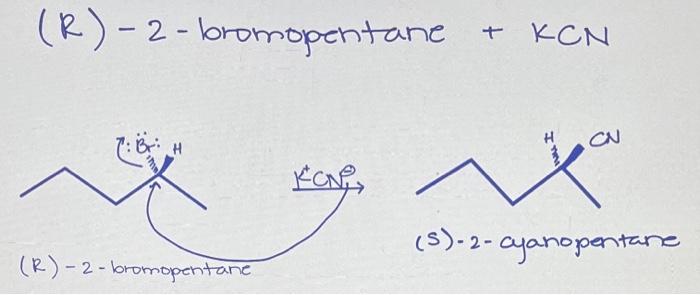 (R)-2-bromopentane + KCN
:Br: H
K⁺CN⊖
H CN
(R)-2-bromopentane
(S)-2-cyanopentane